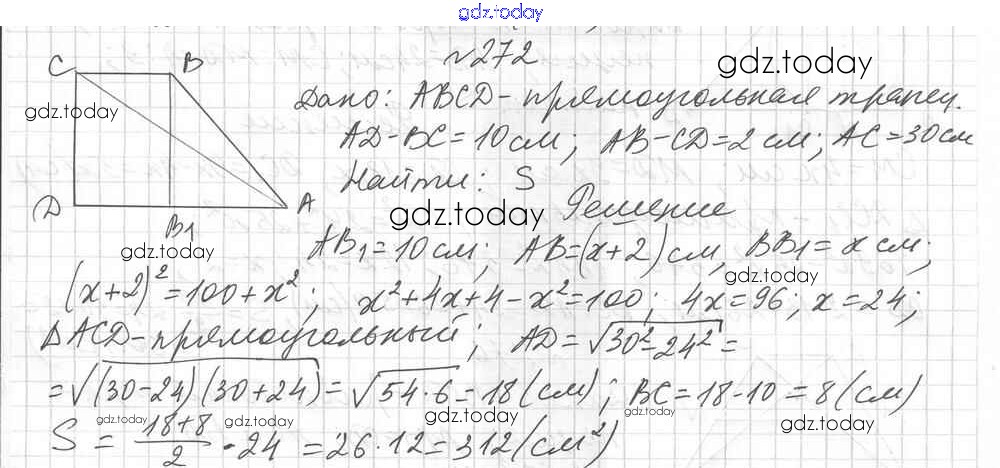 gdz.today
№272
gdz.today
C B
gdz.today
Дано: ABCD - прямоугольная трапец.
AD-BC=10см; AB-CD=2см; AC=30см
Найти: S
D B1 A
gdz.today
Решение
gdz.today
AB1=10см; AB=(x+2)см, BB1=x см;
gdz.today
(x+2)²=100+x²; x²+4x+4-x²=100; 4x=96; x=24;
ΔACD-прямоугольный; AD=√30²-24²=
=√(30-24)(30+24)=√54·6=18(см); BC=18-10=8(см)
gdz.today gdz.today gdz.today gdz.today gdz.today
S = 18+8/2 · 24 = 26·12=312(см²)